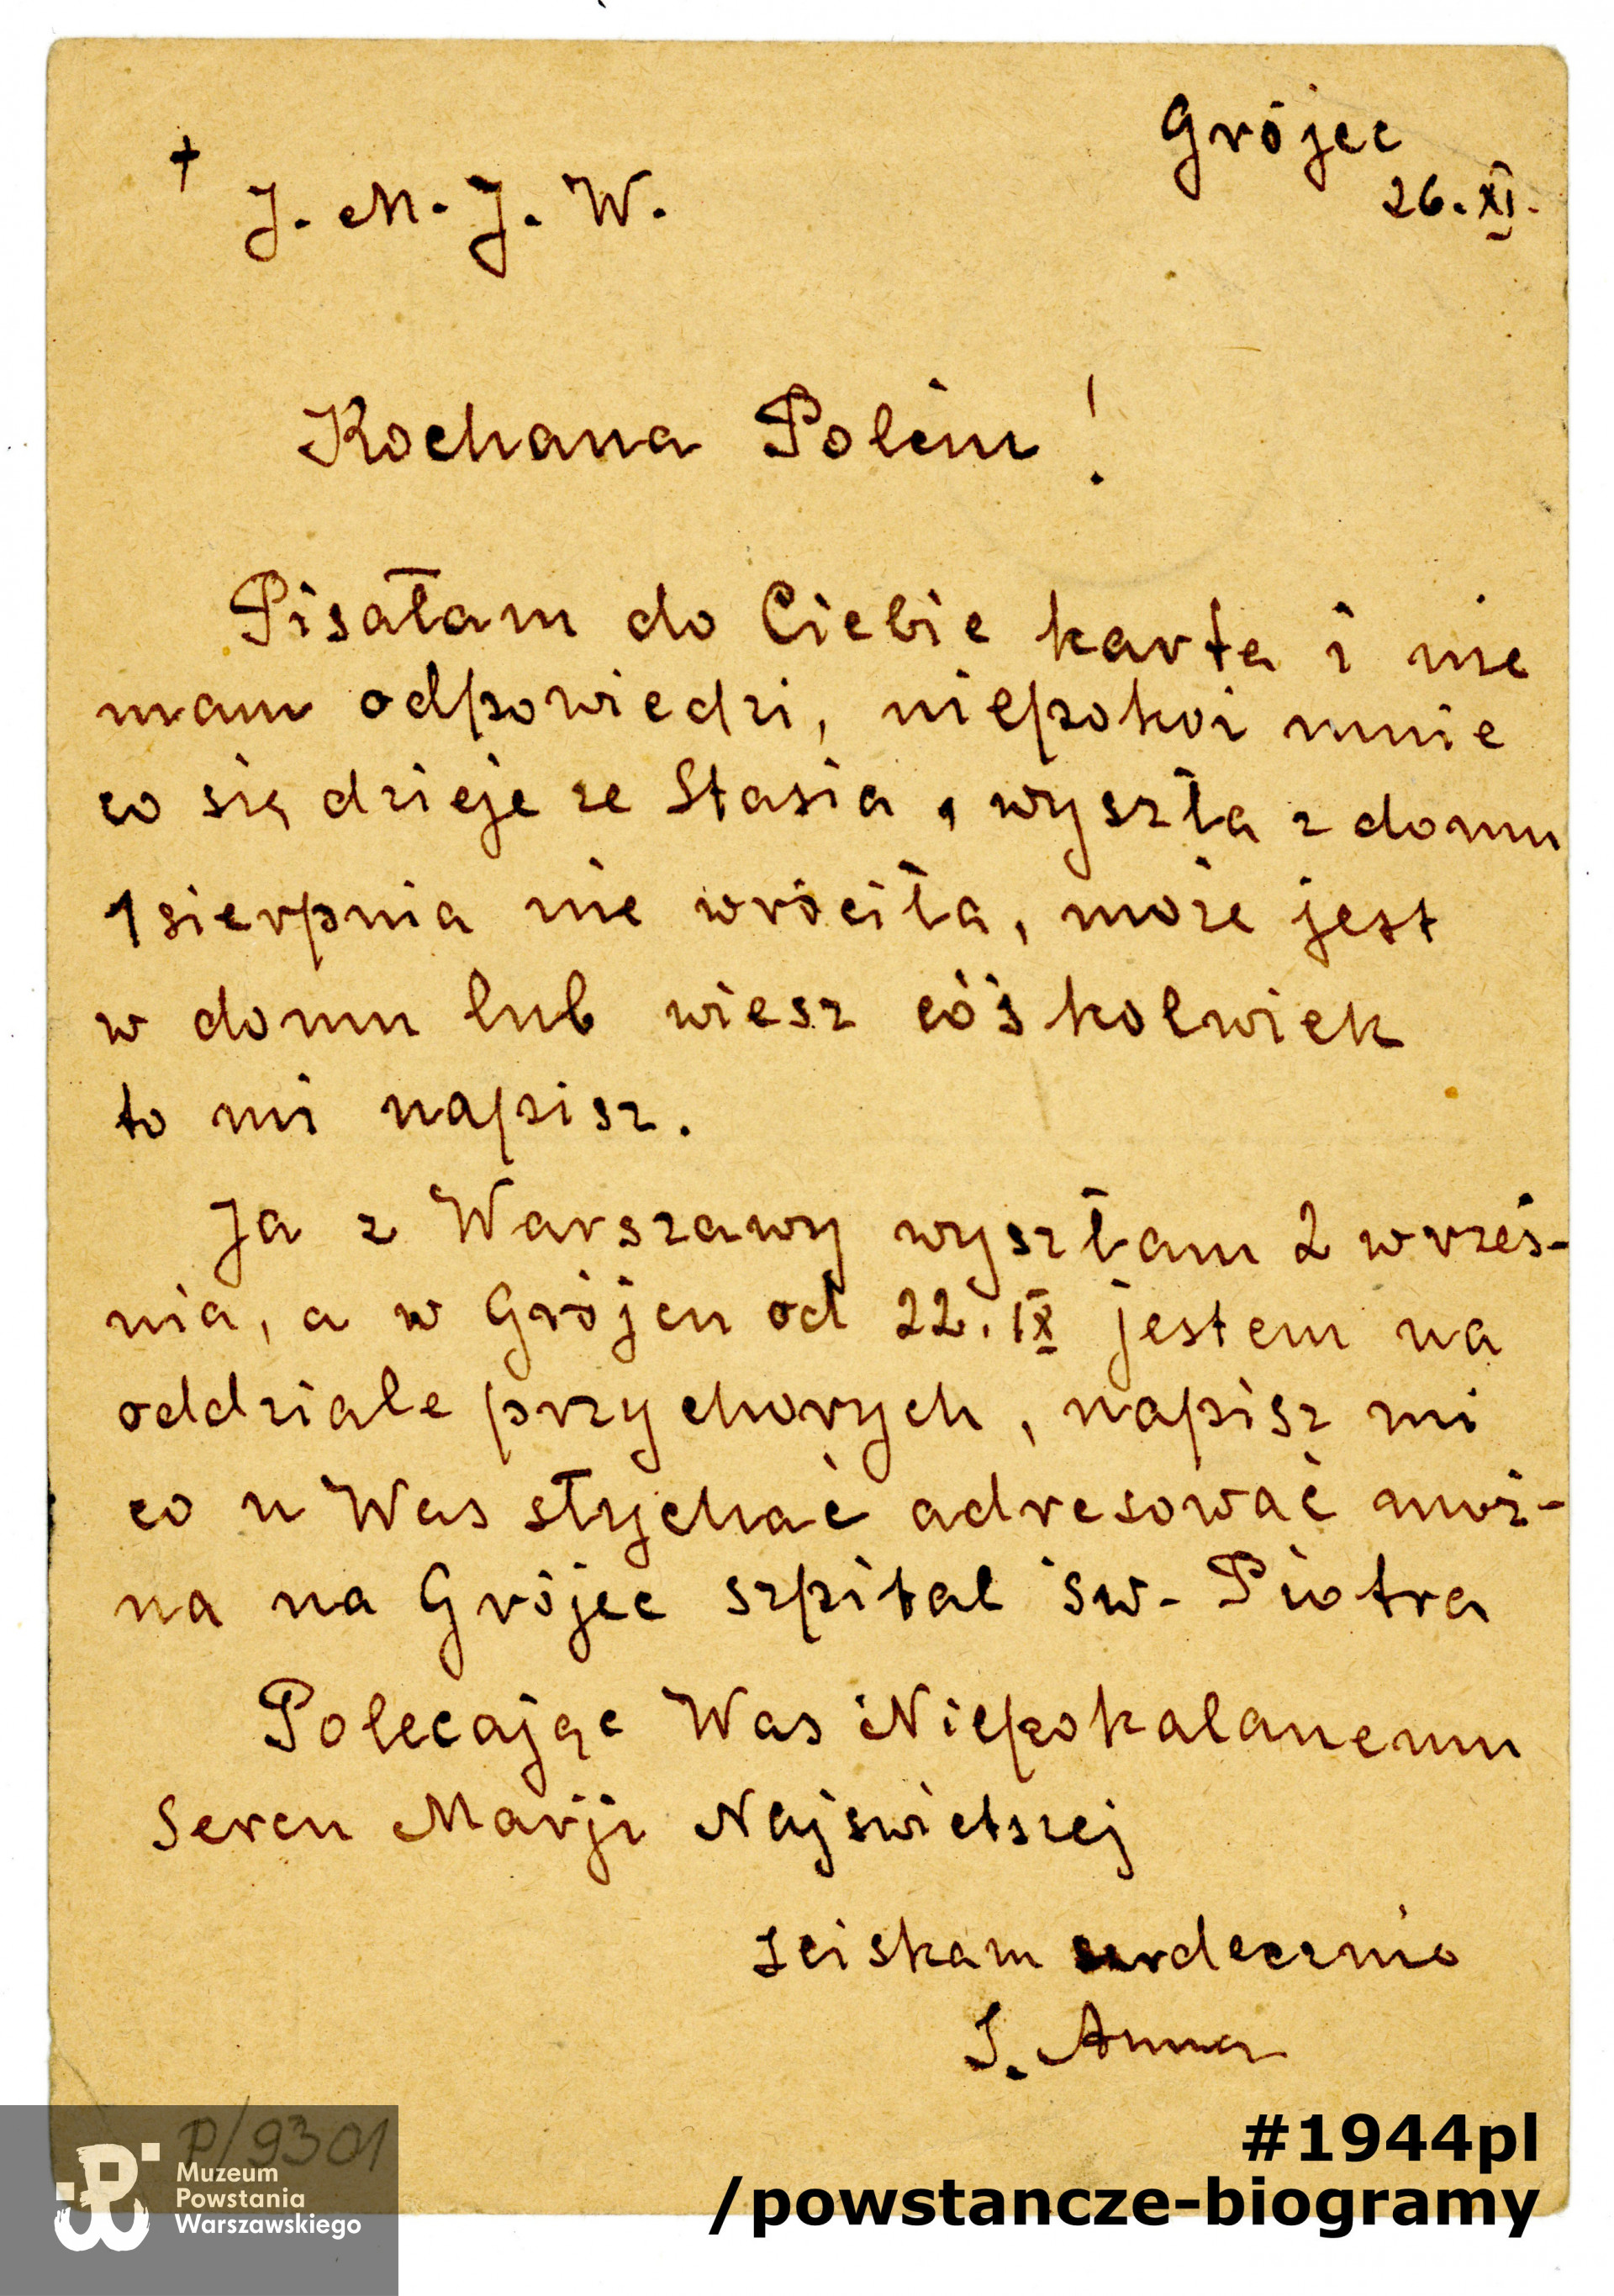 Grójec
26. XI.
+
J. M. J. W.
Kochana Polciu!
Pisałam do Ciebie karta i nie
mam odpowiedzi, niepokoi mnie
co się dzieje ze Stasia, wyszła z domu
1 sierpnia nie wróciła, może jest
w domu lub wiesz cóśkolwiek
to mi napisz.
Ja z Warszawy wyszłam 2 wrześ-
nia, a w Grójcu od 22. IX jestem na
oddziale przy chorych, napisz mi
co u Was słychać adresować moż-
na na Grójec szpital św. Piotra
Polecając Was Niepokalanemu
Sercu Marji Najświetszej
sciskam serdecznie
S. Anna
P/9301
Muzeum
Powstania
Warszawskiego
#1944pl
/powstancze-biogramy